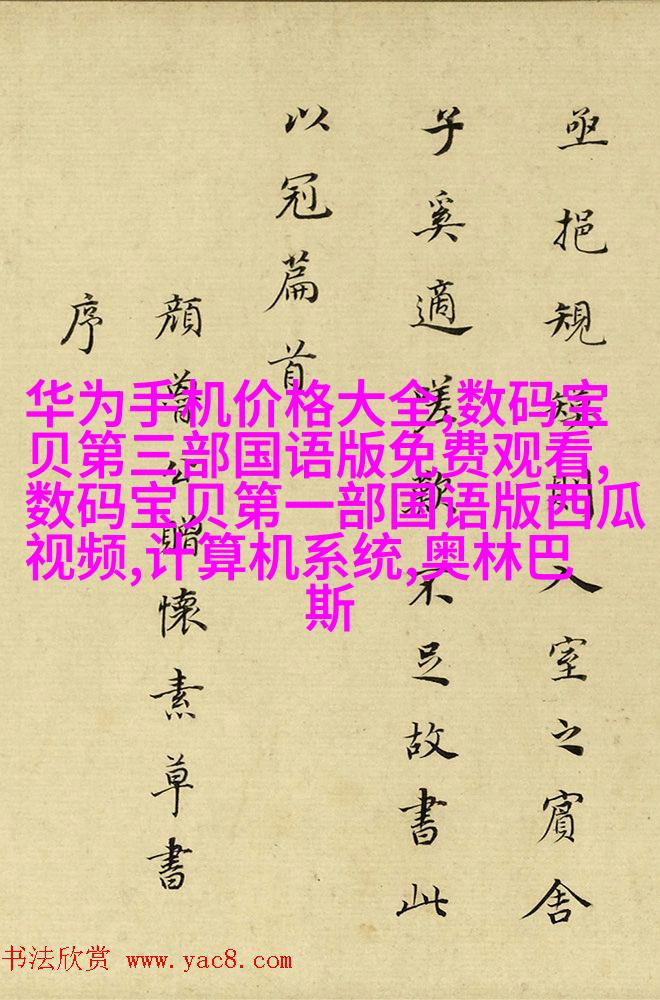 亟挹規矩則入室之賓舍
子奚適嗟歎不足故書此
以冠篇首
顔魯公贈懷素草書
序
华为手机价格大全,数码宝
贝第三部国语版免费观看,
数码宝贝第一部国语版西瓜
视频,计算机系统,奥林巴
斯
书法欣赏 www.yac8.com